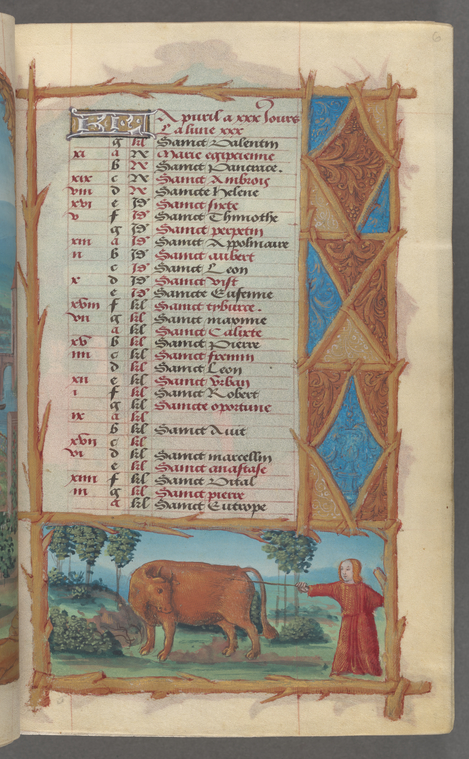 6
KL Apuril a xxx Jours
La lune xxx
g kl Sainct Valentin
xi a Marie egipcienne
b Sainct Pancrace.
xix c Sainct Ambrois
viii d Saincte Helene
xvi e Sainct sixte
v f Sainct Thimothe
g Sainct perpetin
xiii a Sainct Appolinaire
ii b Sainct aubert
c Sainct Leon
x d Sainct
e Saincte Eufemie
xviii f kl Sainct tyburce.
vii g kl Sainct maxime
a kl Sainct Calixte
xv b kl Sainct Pierre
iiii c kl Sainct fremin
d kl Sainct Leon
xii e kl Sainct Urban
i f kl Sainct Robert
g kl Saincte oportune
ix a kl
b kl Sainct Avit
xvii c kl
vi d kl Sainct marcellin
e kl Sainct anastase
xiiii f kl Sainct Vital
iii g kl Sainct pierre
a kl Sainct Eutrope